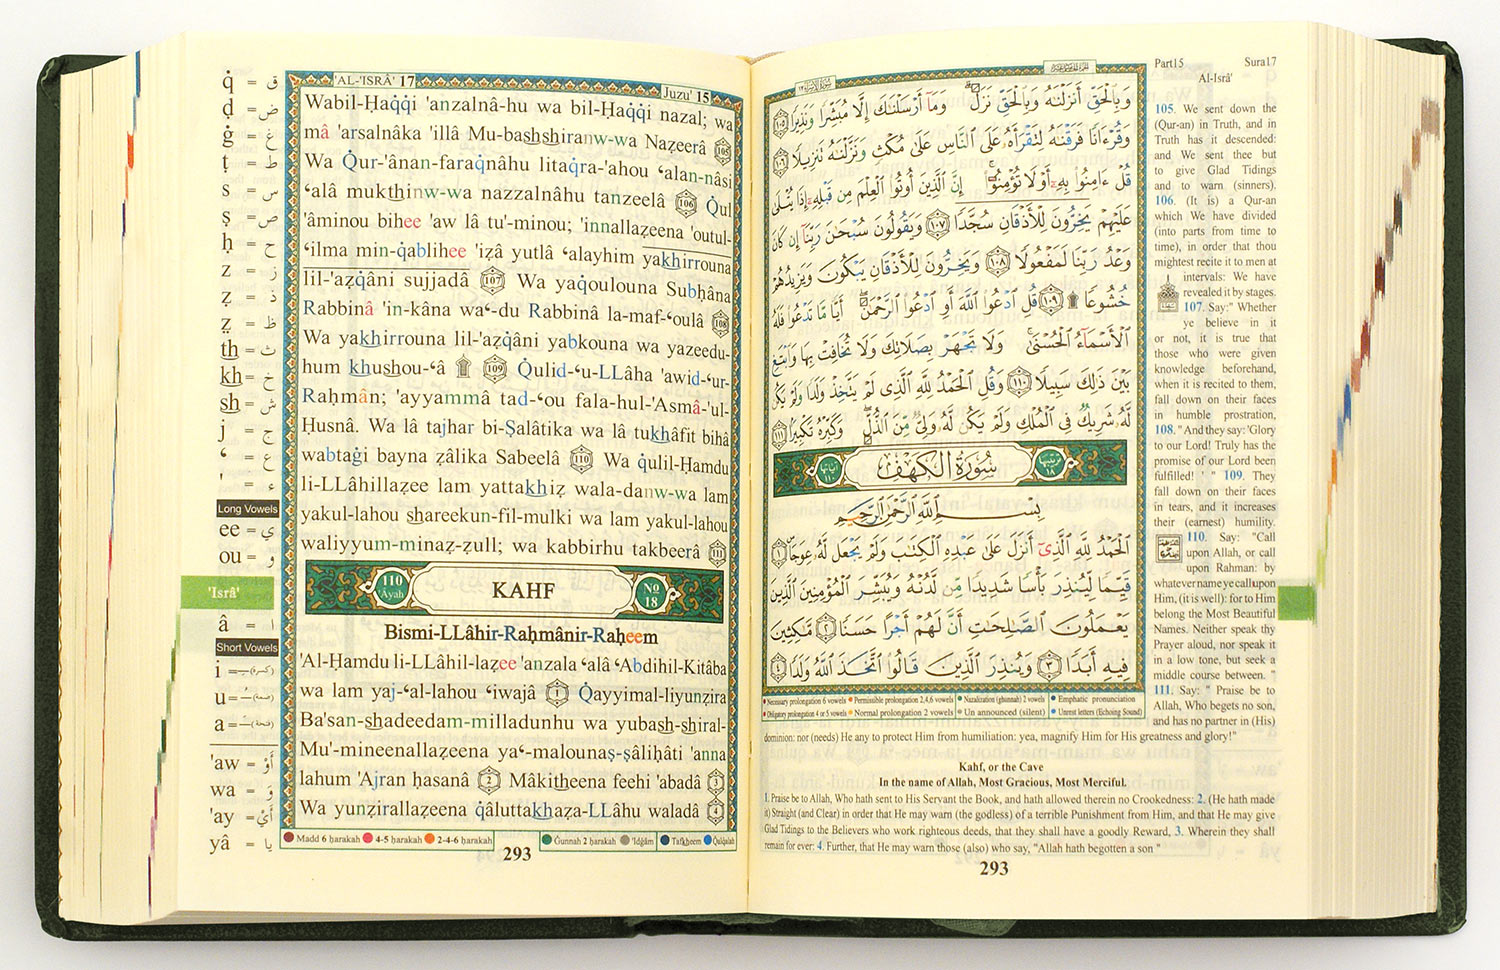 q̇ = ق
ḍ = ض
ġ = غ
ṭ = ط
s = س
ṣ = ص
ḥ = ح
z = ز
ẓ = ذ
ẓ = ظ
th = ث
kh = خ
sh = ش
j = ج
ʻ = ع
' = ء
Long Vowels
ee = ي
ou = و
'Isrâ'
â = ا
Short Vowels
i = (كسرة)
u = (ضمة)
a = (فتحة)
'aw = أَوْ
wa = وَ
'ay = أَيْ
yâ = يا
'AL-'ISRÂ' 17
Juzu' 15
Wabil-Ḥaq̇q̇i 'anzalnâ-hu wa bil-Ḥaq̇q̇i nazal; wa
mâ 'arsalnâka 'illâ Mu-bashshiranw-wa Naẓeerâ 105
Wa Q̇ur-'ânan-faraq̇nâhu litaq̇ra-'ahou ʻalan-nâsi
ʻalâ mukthinw-wa nazzalnâhu tanzeelâ 106 Q̇ul
'âminou bihee 'aw lâ tu'-minou; 'innallaẓeena 'outul-
ʻilma min-q̇ablihee 'iẓâ yutlâ ʻalayhim yakhirrouna
lil-'aẓq̇âni sujjadâ 107 Wa yaq̇oulouna Subḥâna
Rabbinâ 'in-kâna waʻ-du Rabbinâ la-maf-ʻoulâ 108
Wa yakhirrouna lil-'aẓq̇âni yabkouna wa yazeedu-
hum khushou-ʻâ 109 Q̇ulid-ʻu-LLâha 'awid-ʻur-
Raḥmân; 'ayyammâ tad-ʻou fala-hul-'Asmâ-'ul-
Ḥusnâ. Wa lâ tajhar bi-Ṣalâtika wa lâ tukhâfit bihâ
wabtaġi bayna ẓâlika Sabeelâ 110 Wa q̇ulil-Ḥamdu
li-LLâhillaẓee lam yattakhiẓ wala-danw-wa lam
yakul-lahou shareekun-fil-mulki wa lam yakul-lahou
waliyyum-minaẓ-ẓull; wa kabbirhu takbeerâ 111
110 'Âyah
KAHF
No 18
Bismi-LLâhir-Raḥmânir-Raḥeem
'Al-Ḥamdu li-LLâhil-laẓee 'anzala ʻalâ ʻAbdihil-Kitâba
wa lam yaj-ʻal-lahou ʻiwajâ 1 Q̇ayyimal-liyunẓira
Ba'san-shadeedam-milladunhu wa yubash-shiral-
Mu'-mineenallaẓeena yaʻ-malounaṣ-ṣâliḥâti 'anna
lahum 'Ajran ḥasanâ 2 Mâkitheena feehi 'abadâ 3
Wa yunẓirallaẓeena q̇âluttakhaẓa-LLâhu waladâ 4
Madd 6 ḥarakah 4-5 ḥarakah 2-4-6 ḥarakah
Ġunnah 2 ḥarakah 'Idġâm Tafkheem Q̇alq̇alah
293
وَبِالْحَقِّ أَنزَلْنَٰهُ وَبِالْحَقِّ نَزَلَ وَمَا أَرْسَلْنَٰكَ إِلَّا مُبَشِّرًا وَنَذِيرًا ١٠٥
وَقُرْءَانًا فَرَقْنَٰهُ لِتَقْرَأَهُ عَلَى النَّاسِ عَلَىٰ مُكْثٍ وَنَزَّلْنَٰهُ تَنزِيلًا ١٠٦
قُلْ ءَامِنُوا بِهِ أَوْ لَا تُؤْمِنُوا إِنَّ الَّذِينَ أُوتُوا الْعِلْمَ مِن قَبْلِهِ إِذَا يُتْلَىٰ
عَلَيْهِمْ يَخِرُّونَ لِلْأَذْقَانِ سُجَّدًا ١٠٧ وَيَقُولُونَ سُبْحَٰنَ رَبِّنَا إِن كَانَ
وَعْدُ رَبِّنَا لَمَفْعُولًا ١٠٨ وَيَخِرُّونَ لِلْأَذْقَانِ يَبْكُونَ وَيَزِيدُهُمْ
خُشُوعًا ١٠٩ قُلِ ادْعُوا اللَّهَ أَوِ ادْعُوا الرَّحْمَٰنَ أَيًّا مَّا تَدْعُوا فَلَهُ
الْأَسْمَاءُ الْحُسْنَىٰ وَلَا تَجْهَرْ بِصَلَاتِكَ وَلَا تُخَافِتْ بِهَا وَابْتَغِ
بَيْنَ ذَٰلِكَ سَبِيلًا ١١٠ وَقُلِ الْحَمْدُ لِلَّهِ الَّذِي لَمْ يَتَّخِذْ وَلَدًا وَلَمْ يَكُن
لَّهُ شَرِيكٌ فِي الْمُلْكِ وَلَمْ يَكُن لَّهُ وَلِيٌّ مِّنَ الذُّلِّ وَكَبِّرْهُ تَكْبِيرًا ١١١
ترتيبها ١٨
سُورَةُ الكَهْفِ
آياتها ١١٠
بِسْمِ اللَّهِ الرَّحْمَٰنِ الرَّحِيمِ
الْحَمْدُ لِلَّهِ الَّذِي أَنزَلَ عَلَىٰ عَبْدِهِ الْكِتَٰبَ وَلَمْ يَجْعَل لَّهُ عِوَجَا ١
قَيِّمًا لِّيُنذِرَ بَأْسًا شَدِيدًا مِّن لَّدُنْهُ وَيُبَشِّرَ الْمُؤْمِنِينَ الَّذِينَ
يَعْمَلُونَ الصَّٰلِحَٰتِ أَنَّ لَهُمْ أَجْرًا حَسَنًا ٢ مَّٰكِثِينَ
فِيهِ أَبَدًا ٣ وَيُنذِرَ الَّذِينَ قَالُوا اتَّخَذَ اللَّهُ وَلَدًا ٤
Necessary prolongation 6 vowels Permissible prolongation 2,4,6 vowels Nazalization (ghunnah) 2 vowels Emphatic pronunciation
Obligatory prolongation 4 or 5 vowels Normal prolongation 2 vowels Un announced (silent) Unrest letters (Echoing Sound)
Part15 Sura17
Al-Isrâ'
105. We sent down the
(Qur-an) in Truth, and in
Truth has it descended:
and We sent thee but
to give Glad Tidings
and to warn (sinners).
106. (It is) a Qur-an
which We have divided
(into parts from time to
time), in order that thou
mightest recite it to men at
intervals: We have
revealed it by stages.
107. Say:" Whether
ye believe in it
or not, it is true that
those who were given
knowledge beforehand,
when it is recited to them,
fall down on their faces
in humble prostration,
108. "And they say: 'Glory
to our Lord! Truly has the
promise of our Lord been
fulfilled! ' " 109. They
fall down on their faces
in tears, and it increases
their (earnest) humility.
110. Say: "Call
upon Allah, or call
upon Rahman: by
whatever name ye call upon
Him, (it is well): for to Him
belong the Most Beautiful
Names. Neither speak thy
Prayer aloud, nor speak it
in a low tone, but seek a
middle course between. "
111. Say: " Praise be to
Allah, Who begets no son,
and has no partner in (His)
dominion: nor (needs) He any to protect Him from humiliation: yea, magnify Him for His greatness and glory!"
Kahf, or the Cave
In the name of Allah, Most Gracious, Most Merciful.
1. Praise be to Allah, Who hath sent to His Servant the Book, and hath allowed therein no Crookedness: 2. (He hath made
it) Straight (and Clear) in order that He may warn (the godless) of a terrible Punishment from Him, and that He may give
Glad Tidings to the Believers who work righteous deeds, that they shall have a goodly Reward, 3. Wherein they shall
remain for ever: 4. Further, that He may warn those (also) who say, "Allah hath begotten a son "
293